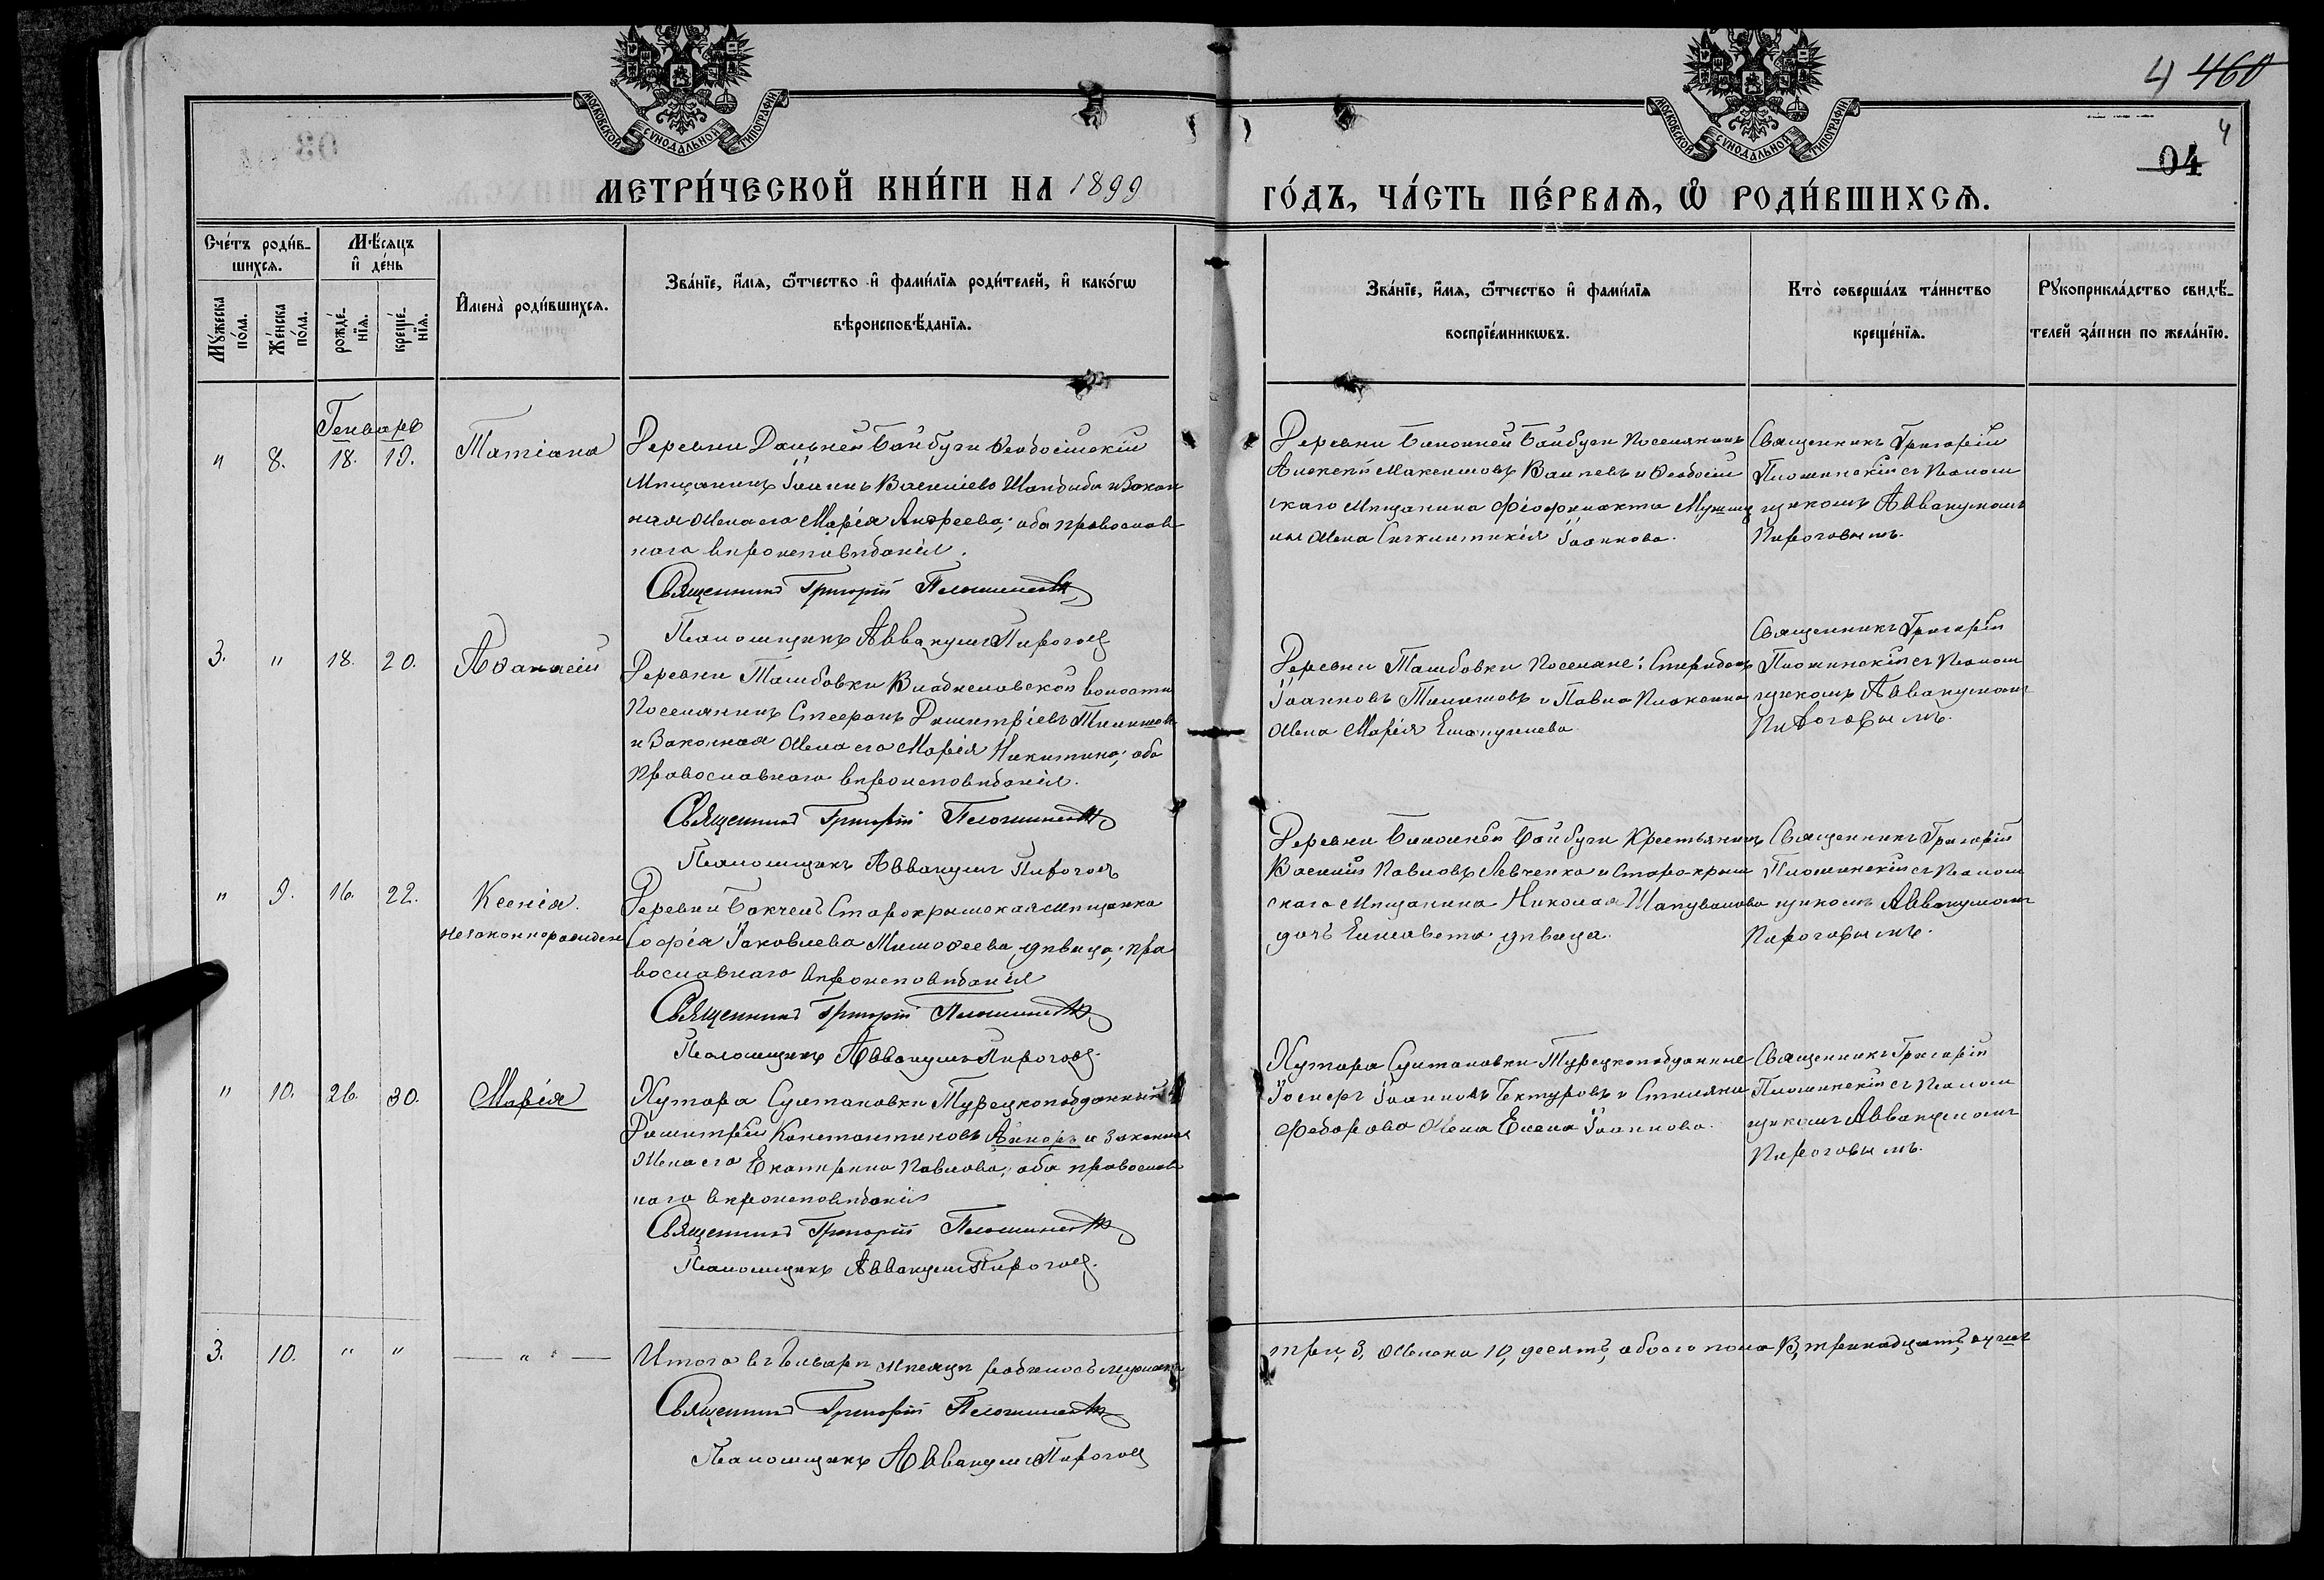 МОСКОВСКОЙ СѴНОДАЛЬНОЙ ТИПОГРАФІИ
МОСКОВСКОЙ СѴНОДАЛЬНОЙ ТИПОГРАФІИ
4 460
4
04
МЕТРИ́ЧЕСКОЙ КНИ́ГИ НА 1899
ГО́ДЪ, ЧА́СТЬ ПЕ́РВАѦ, Ѡ РОДИ́ВШИХСѦ.
Сче́тъ роди́в-
шихсѧ.
Мѣ́сѧцъ
и҆ де́нь
Мꙋ́жеска
по́ла.
Же́нска
по́ла.
рожде́-
нїѧ.
креще́-
нїѧ.
И҆мена̀ роди́вшихсѧ.
Зва́нїе, и҆́мѧ, ѻ҆́тчество и҆ фами́лїѧ роди́телей, и҆ како́гѡ
вѣроисповѣ́данїѧ.
Зва́нїе, и҆́мѧ, ѻ҆́тчество и҆ фами́лїѧ
воспрїе́мникѡвъ.
Кто̀ соверша́лъ та́инство
креще́нїѧ.
Рꙋкоприкла́дство свидѣ́-
телей за́писи по жела́нїю.
Генварь
" 8. 18. 19. Татіана
Деревни Дальней Байбуги Ѳеодосійскій
Мѣщанинъ Іоаннъ Василіевъ и Закон
ная Жена его Марія Андреева; оба православ
наго вѣроисповѣданія.
Священникъ Григорій
Псаломщикъ Аввакумъ Пироговъ
Деревни Ближней Байбуги Поселянинъ
Алексѣй Максимовъ и Ѳеодосій
скаго Мѣщанина Феофилакта
ны Жена Синклитикія Іоаннова.
Священникъ Григорій
съ Псалом
щикомъ Аввакумомъ
Пироговымъ.
3. " 18. 20. Аѳанасій
Деревни Тамбовки Владиславской волости
Поселянинъ Стефанъ Димитріевъ
и Законная Жена его Марія Никитина; оба
Православнаго вѣроисповѣданія.
Священникъ Григорій
Псаломщикъ Аввакумъ Пироговъ
Деревни Тамбовки Поселяне: Спиридонъ
Іоанновъ и Павла
Жена Марія
Священникъ Григорій
съ Псалом
щикомъ Аввакумомъ
Пироговымъ.
" 9. 16. 22. Ксенія.
незаконнорожден
Деревни Бакчели Старокрымская мѣщанка
Софія Іаковлева Тимоѳеева, дѣвица; пра
вославнаго вѣроисповѣданія
Священникъ Григорій
Псаломщикъ Аввакумъ Пироговъ.
Деревни Ближней Байбуги Крестьянинъ
Василій Павловъ Левченко и Старо-крым
скаго Мѣщанина Николая Шаповалова
дочь Елисавета дѣвица.
Священникъ Григорій
съ Псалом
щикомъ Аввакумомъ
Пироговымъ.
" 10. 26. 30. Марія
Хутора Султановки Турецкоподданный
Димитрій Константиновъ и законная
Жена его Екатерина Павлова; оба православ
наго вѣроисповѣданія
Священникъ Григорій
Псаломщикъ Аввакумъ Пироговъ.
Хутора Султановки Турецкоподданные
Іосифъ Іоанновъ и Стиліана
Федорова Жена Елена Іоаннова.
Священникъ Григорій
съ Псалом
щикомъ Аввакумомъ
Пироговымъ.
3. 10. " " — " —
Итого въ Генварѣ мѣсяцѣ родилось мужска
три, 3, Женска 10, десять, обоего пола 13, тринадцать душъ
Священникъ Григорій
Псаломщикъ Аввакумъ Пироговъ